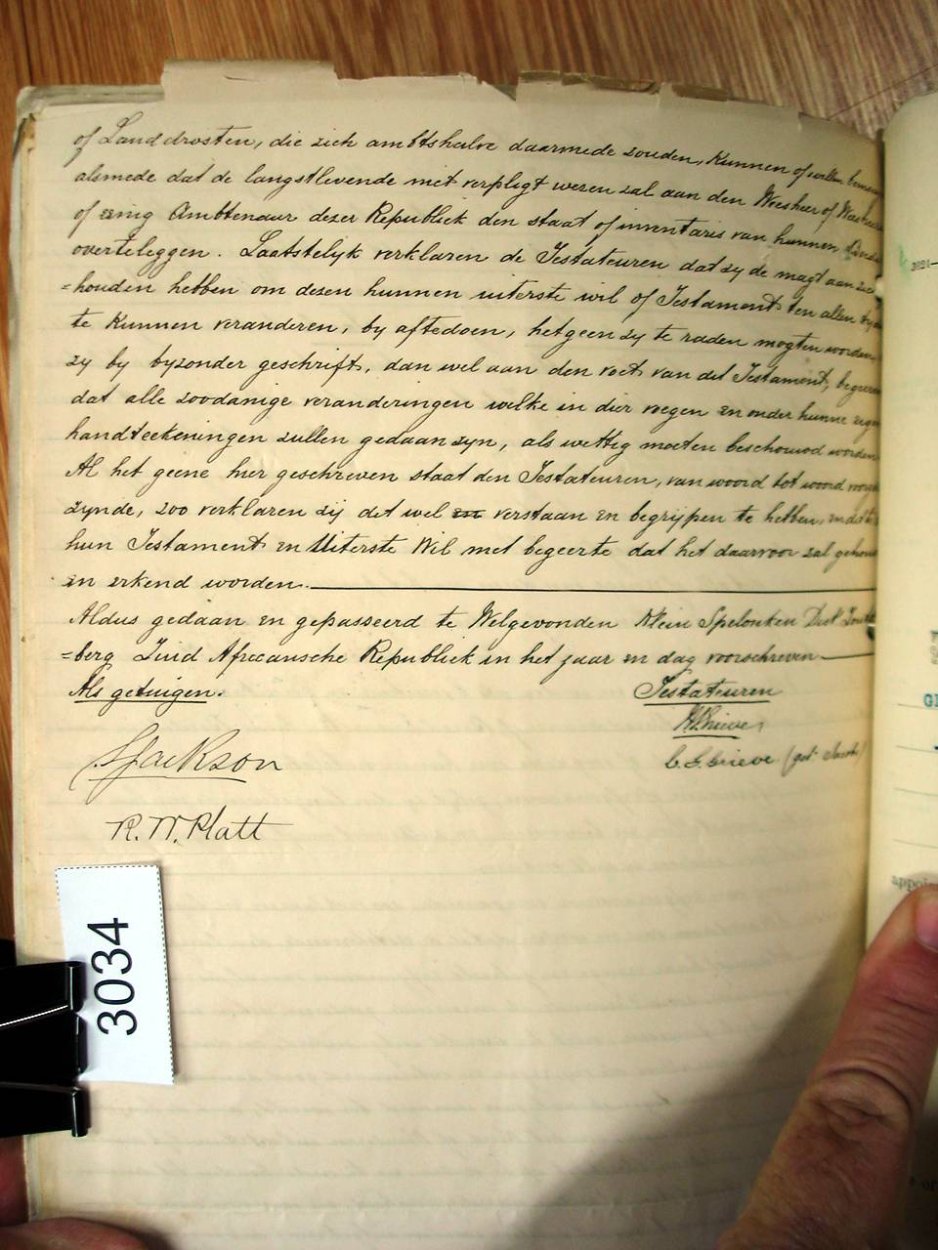 of Landdrosten, die zich ambtshalve daarmede zouden, kunnen of willen
alsmede dat de langstlevende niet verpligt wezen zal aan den Weesheer of
of eenig Ambtenaar dezer Republiek den staat of inventaris van hunnen
overteleggen. Laatstelyk verklaren de Testateuren dat zy de magt aan
=houden hebben om dezen hunnen uiterste wil of Testament ten allen
te kunnen veranderen, by aftedoen, hetgeen zy te raden mogten worden,
zy by byzonder geschrift, dan wel aan den voet van dit Testament,
dat alle zoodanige veranderingen welke in dier voegen en onder hunne
handteekeningen zullen gedaan zyn, als wettig moeten beschouwd worden
Al het geene hier geschreven staat den Testateuren, van woord tot woord
zynde, zoo verklaren zij dit wel en verstaan en begrijpen te hebben,
hun Testament en Uiterste Wil met begeerte dat het daarvoor zal
en erkend worden.
Aldus gedaan en gepasseerd te Welgevonden Klein Spelonken Dist
=berg Zuid Africaansche Republiek in het jaar en dag voorschreven
Als getuigen. Testateuren
Grieve
SJackson C.S. Grieve
R. W. Platt
3034